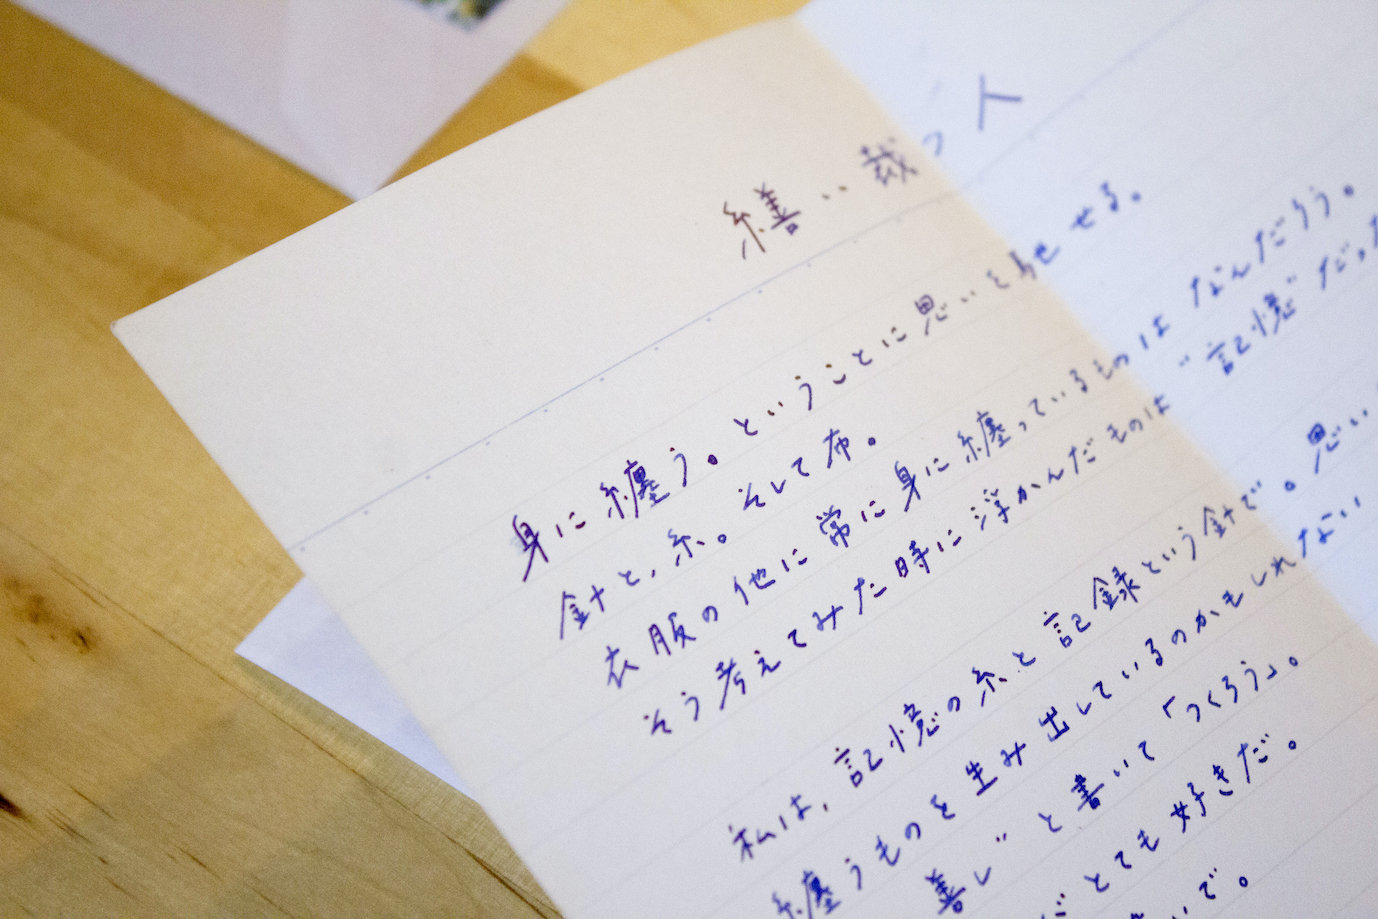 繕い裁つ人
身に纏う。ということに思いを馳せる。
針と、糸。そして布。
衣服の他に常に身に纏っているものはなんだろう。
そう考えてみた時に浮かんだものは“記憶”だった
私は、記憶の糸と記録という針で。思い
纏うものを生み出しているのかもしれない
善し”と書いて「つくろう」。
とても好きだ。
いで。